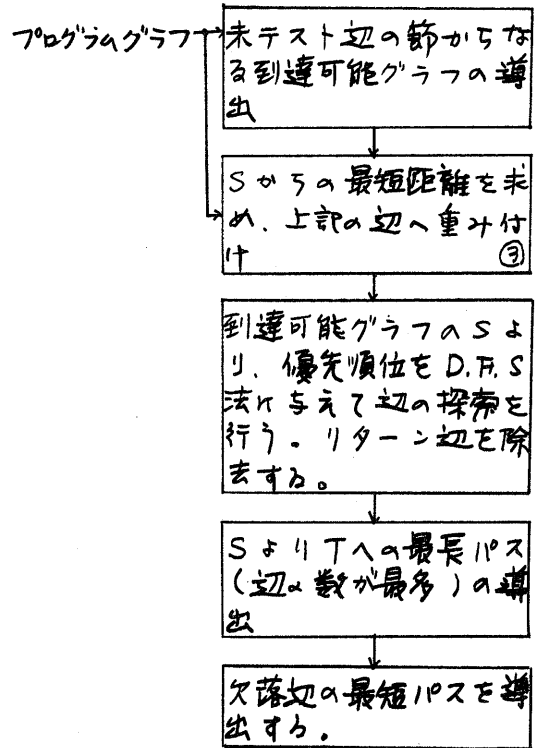 プログラムグラフ
未テスト辺の節からな
る到達可能グラフの導
出
Sからの最短距離を求
め、上記の辺へ重み付
け ③
到達可能グラフのSよ
り、優先順位をD.F.S
法に与えて辺の探索を
行う。リターン辺を除
去する。
SよりTへの最長パス
(辺の数が最多)の導
出
欠落辺の最短パスを導
出する。